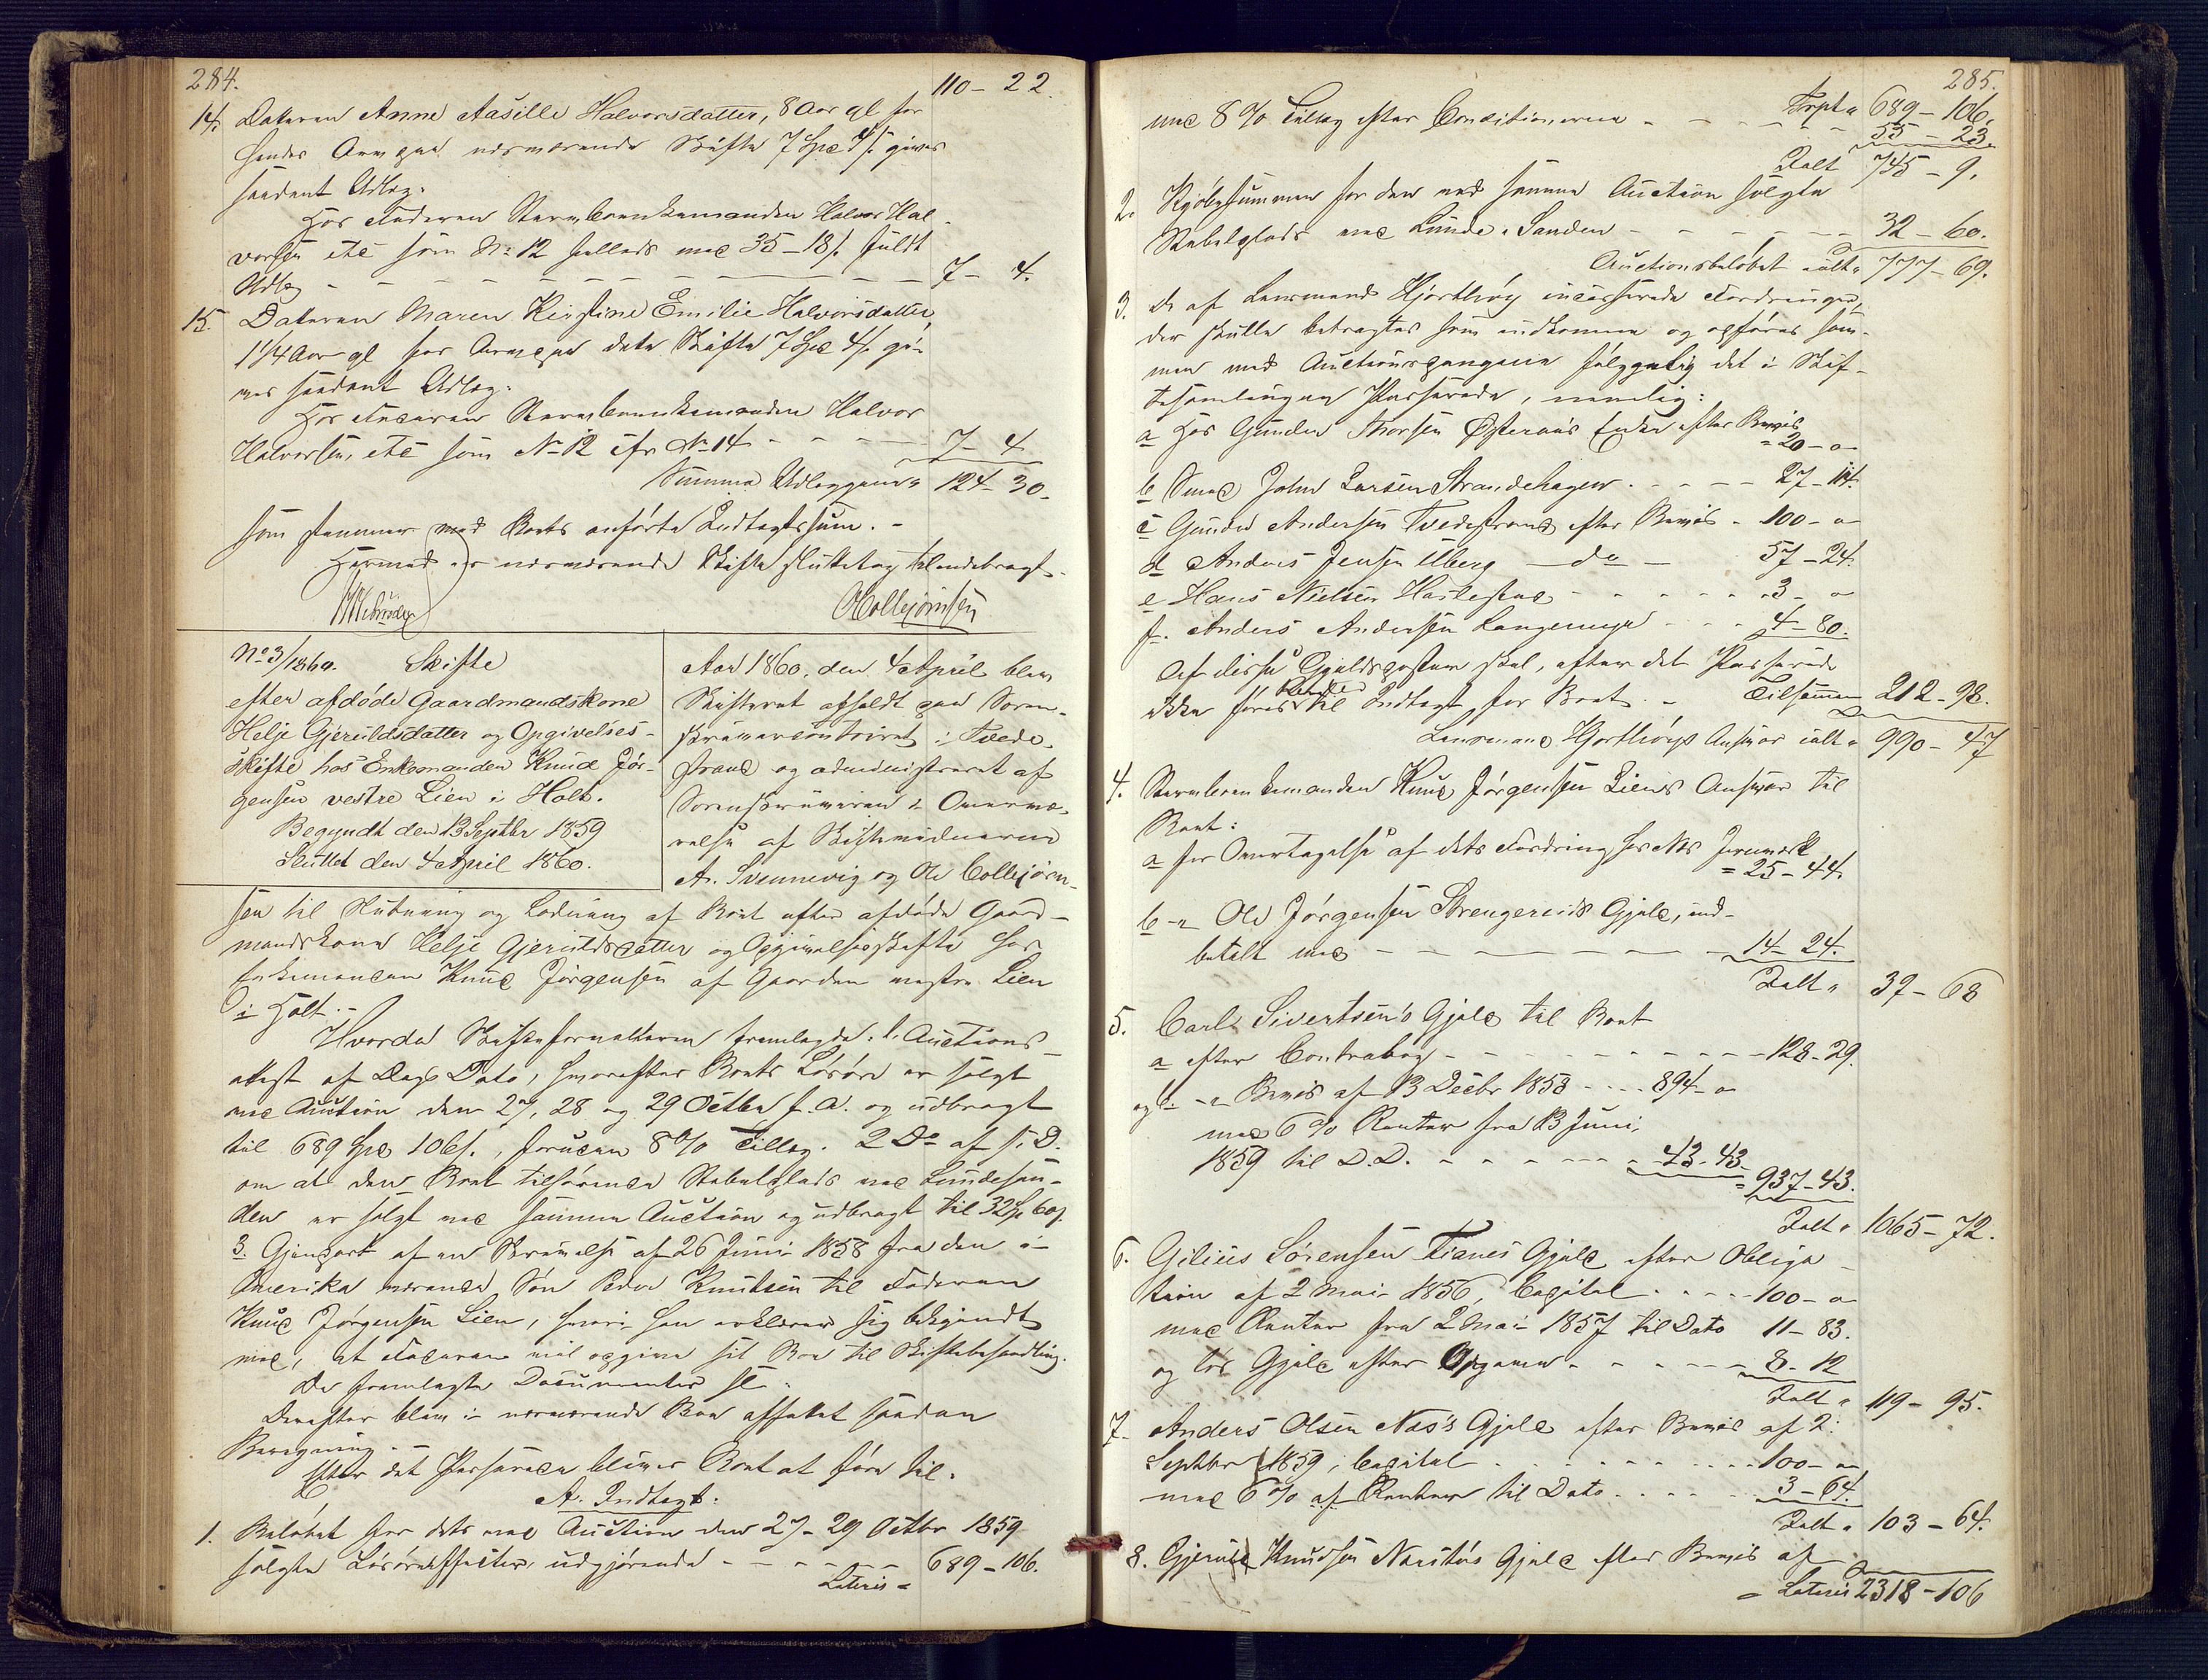 284.
110 - 22.
14. Datteren Anne Aasille Halvorsdatter, 8 Aar gl for
hendes Arv paa nærværende Skifte 7 Spd 4 s. gives
saadant Udlæg:
Hos Faderen Stervboenkemanden Halvor Hal-
vorsen etc som No 12 holdes med 35 - 18 s. fuldt
Udlæg - - - - - - - 7 - 4.
15. Datteren Maren Kirstine Emilie Halvorsdatter,
1 1/4 Aar gl for Arv paa dette Skifte 7 Spd 4 s. gi-
ves saadant Udlæg:
Hos Faderen Stervboenkemanden Halvor
Halvorsen, etc som No 12 cfr No 14 - - - - 7 - 4
Summa Udlæggene " 124 - 30.
som stemmer med Boets anførte Indtægtssum. -
Hermed er nærværende Skifte sluttet og tilendebragt. -
OCollbjørnsen
No 3/1860. Skifte
efter afdøde Gaardmandskone
Helje Gjeruldsdatter og Opgivelses-
skifte hos Enkemanden Knud Jør-
gensen vestre Lien i Holt.
Begyndt den 13 Septbr 1859
Sluttet den 4 April 1860.
Aar 1860. den 4 April blev
Skifteret afholdt paa Soren-
skrivercontoiret i Tvede-
strand og administreret af
Sorenskriveren i Overvæ-
relse af Skiftevidnerne
A. Svennevig og Ole Collbjørn-
sen til Slutning og Lodning af Boet efter afdøde Gaard-
mandskone Helje Gjeruldsdatter og Opgivelsesskifte hos
Enkemanden Knud Jørgensen af Gaarden vestre Lien
i Holt. -
Hvorda Skifteforvalteren fremlagde 1. Auctions-
attest af Dags Dato, hvorefter Boets Løsøre er solgt
ved Auction den 27, 28 og 29 Octbr f. A. og udbragt
til 689 Spd 106 s., foruden 8 % Tillæg. 2 Do af s. D.
om at den Boet tilhørende Stabelplads ved Lundesan-
den er solgt ved samme Auction og udbragt til 32 Sp 60 s.
3. Gjenpart af en Skrivelse af 26 Juni 1858 fra den i
Amerika værende Søn Peder Knudsen til Faderen
Knud Jørgensen Lien, hvori han erklærer sig bekjendt
med, at Faderen vil opgive sit Bo til Skiftebehandling.
De fremlagte Documenter fl:
Derefter blev i nærværende Boe affattet saadan
Beregning. -
Efter det Passerede bliver Boet at føre til.
A. Indtægt:
1. Beløbet for dets ved Auction den 27 - 29 Octbr 1859
solgte Løsøreeffecter, udgjørende - - - - - 689 - 106.
Lateris "
285.
Trpt " 689 - 106.
med 8 % Tillæg efter Conditionerne - - - - 55 - 23.
Ialt 745 - 9.
2. Kjøbesummen for den ved samme Auction solgte
Stabelplads ved Lunde-Sanden - - - - - 32 - 60.
Auctionsbeløbet ialt " 777 - 69.
3. De af Lensmand Hjorthøy incasserede Fordringer,
der skulle betragtes som indkomne og opføres sam-
men med Auctionspengene følgelig det i Skif-
tesamlingen Passerede, nemlig:
a Hos Gunder Thorsen Østeraas Enke efter Beviis
" 20 - "
b Smed John Larsen Strandehagen - - - - - 27 - 114.
c Gunder Andersen Tvedestrand efter Beviis - 100 - "
d Anders Jensen Uberg — do — 57 - 24.
e Hans Nielsen Hastestad - - - - - - 3 - "
f. Anders Andersen Langemyr - - - 4 - 80.
Af disse Gjeldsposter skal, efter det Passerede
ikke føres Renter til Indtægt for Boet. - Tilsammen 212 - 98.
Lensmand Hjorthøys Ansvar ialt " 990 - 47
4. Stervboenkemanden Knud Jørgensen Liens Ansvar til
Boet:
a for Overtagelse af dets Fordring hos Nes Jernværk
" 25 - 44.
b - " Ole Jørgensen Strengereids Gjæld, ind-
betalt med - - - - - - - - 14 - 24.
Ialt " 39 - 68
5. Carl Sivertsens Gjæld til Boet
a efter Contrabog - - - - - - - - - 128 - 29.
og b. - " Beviis af 13 Decbr 1858 - - - - 894 - "
med 6 % Renter fra 13 Juni
1859 til D. D. - - - - - - 43 - 43
" 937 - 43.
Ialt " 1065 - 72.
6. Gilius Sørensen Tianes Gjæld efter Obliga-
tion af 2 Mai 1856, Capital - - - - 100 - "
med Renter fra 2 Mai 1857 til Dato 11 - 83.
og løs Gjæld efter Opgaven - - - - - - 8 - 12
Ialt " 119 - 95.
7. Anders Olsen Næs's Gjæld efter Beviis af 2:
Septbr 1859, Capital - - - - - - - - - 100 - "
med 6 % af Renter til Dato - - - - - 3 - 64.
Ialt " 103 - 64.
8. Gjeruld Knudsen Næstøs Gjæld efter Beviis af
" Lateris 2318 - 106